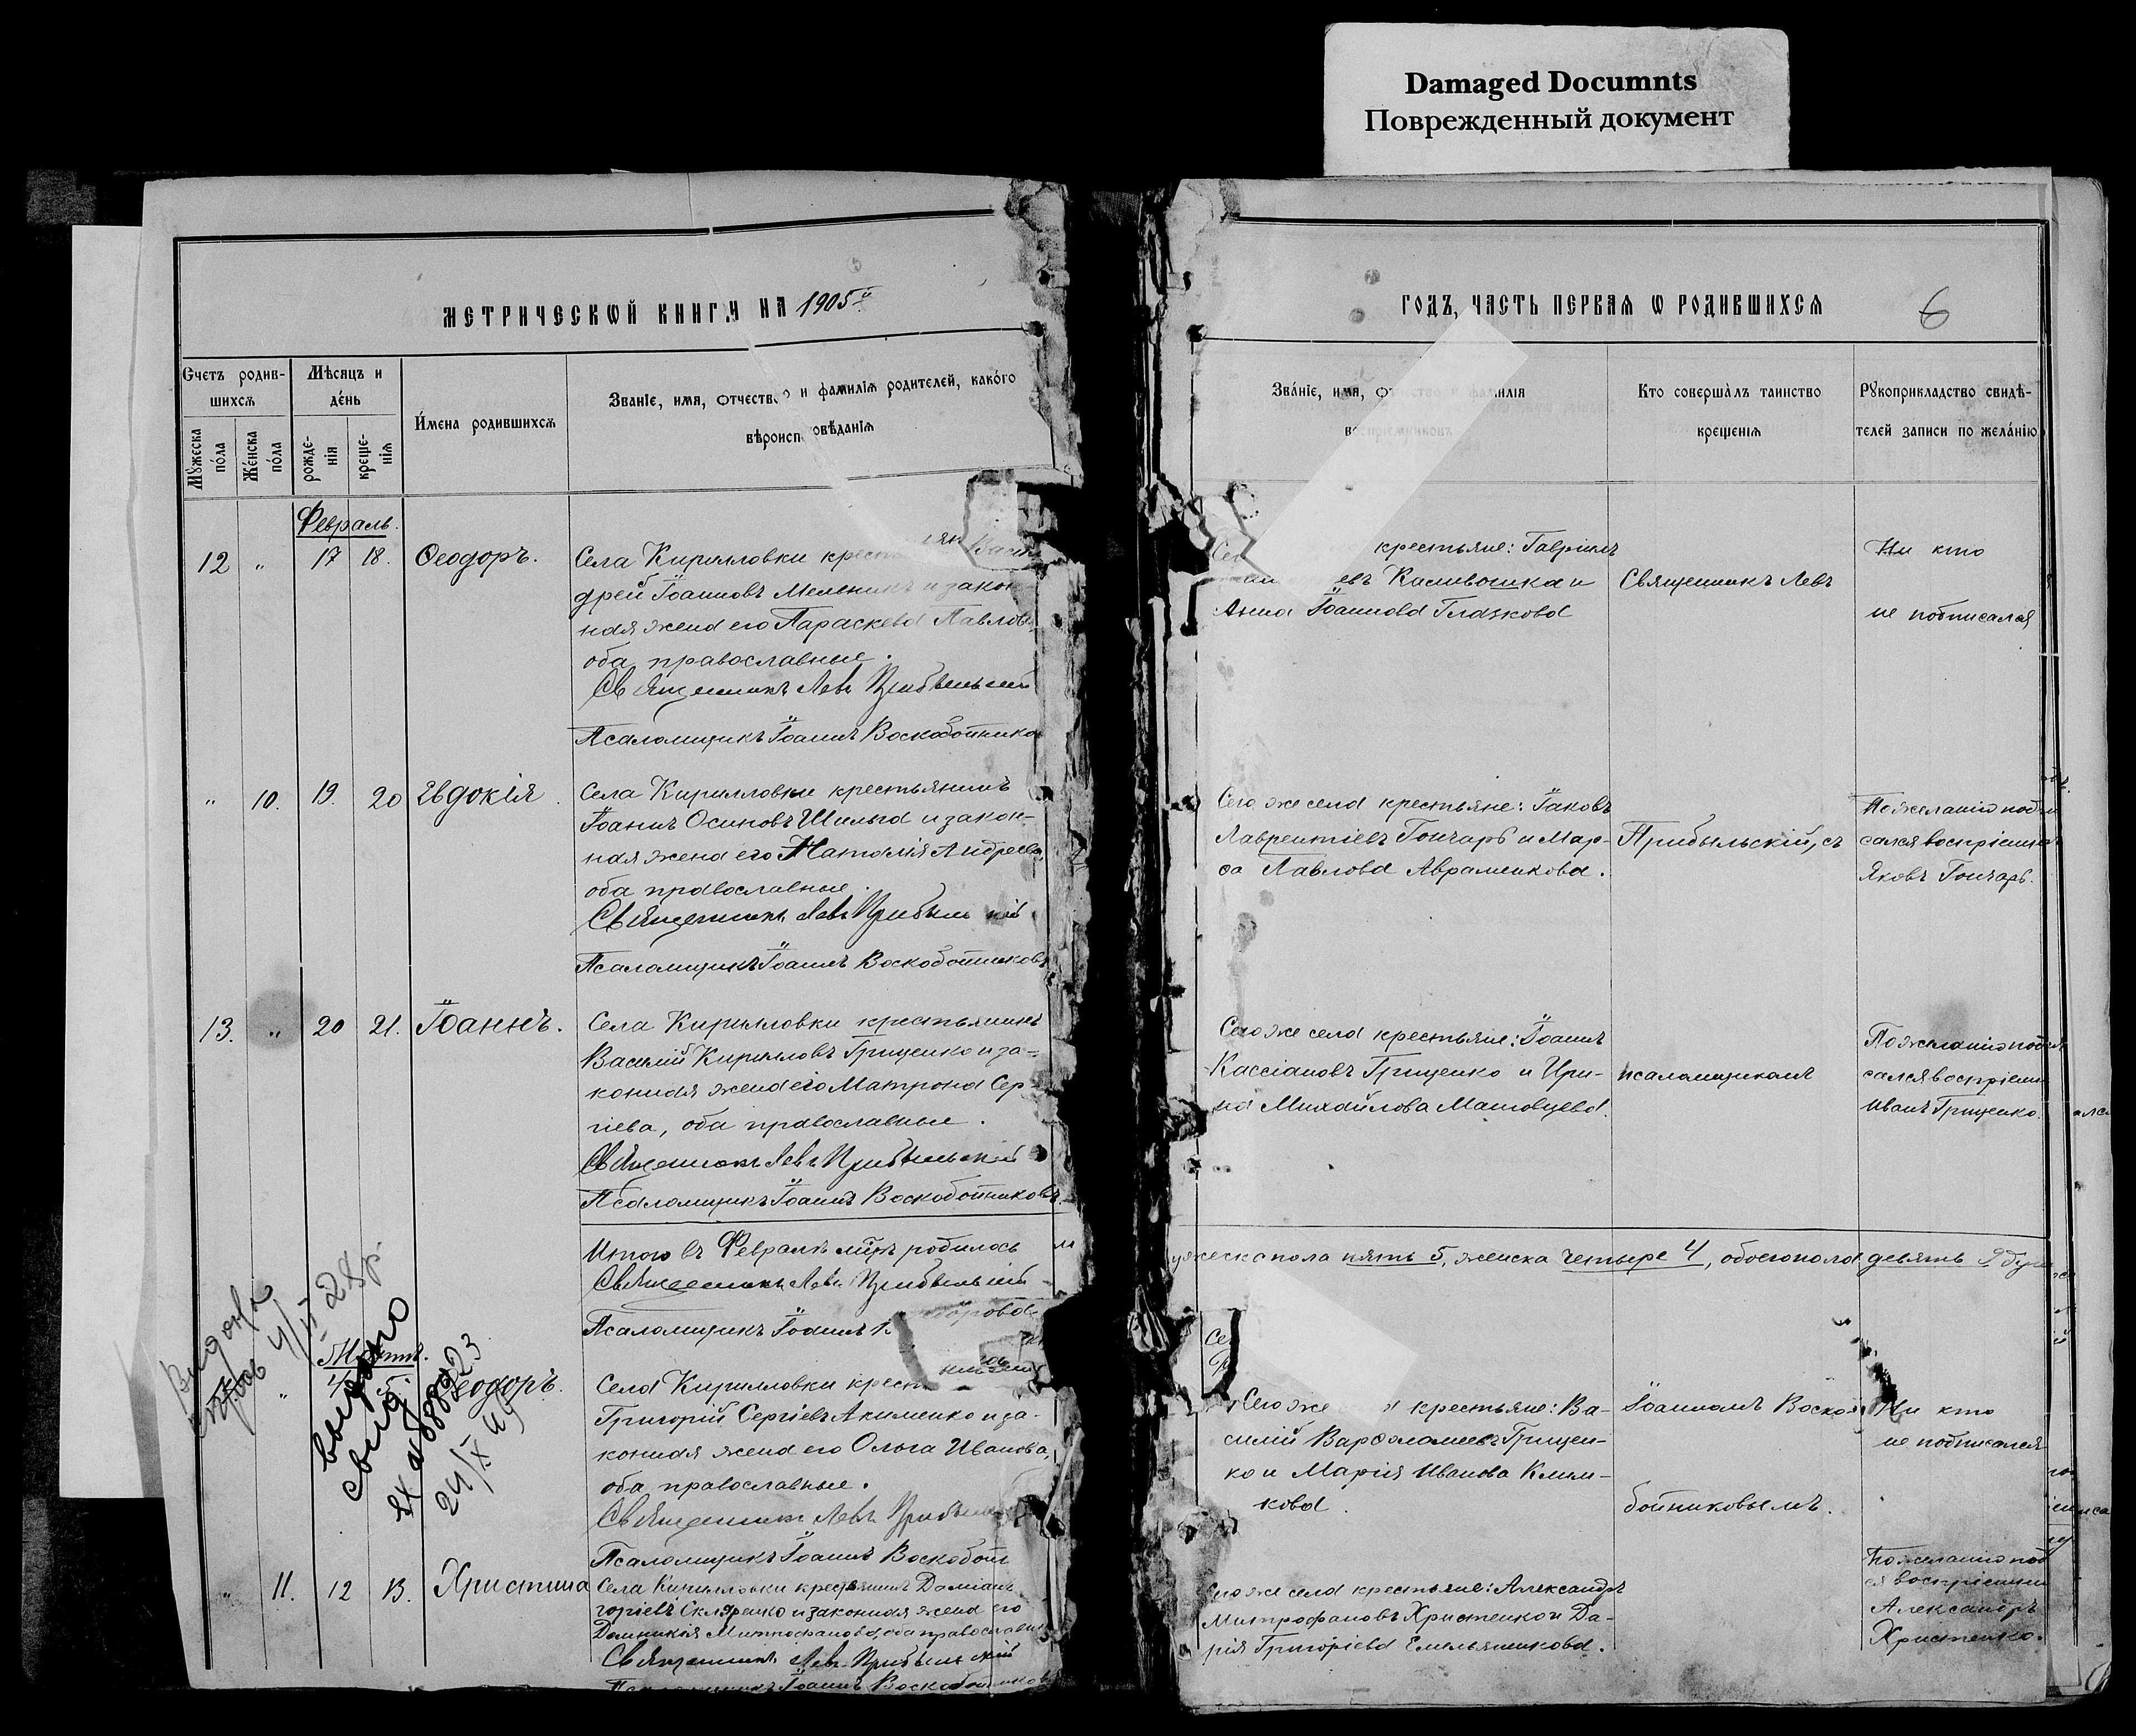 Damaged Documnts
Поврежденный документ
МЕТРИЧЕСКѠЙ КНИГИ НА 1905й
Счетъ родив-
шихсѧ
Мѣсяцъ и
де́нь
И́мена родившихсѧ
Званіе, имя, ѻтчество и фамиліѧ родителей, како́го
вѣроисповѣданіѧ
Мꙋжеска
по́ла
Же́нска
по́ла
рожде-
нія
креще-
нія
Февраль.
12 " 17 18. Ѳеодоръ.
Села Кирилловки
дрей Іоанновъ Мельникъ и закон-
ная жена его Параскева Павлов
оба православные.
Священникъ Левъ Прибыльскій
Псаломщикъ Іоаннъ Воскобойников
" 10. 19. 20 Евдокія.
Села Кирилловки крестьянинъ
Іоаннъ Осиповъ Шильга и закон-
ная жена его Наталія Андреева,
оба православные.
Священникъ Левъ Прибыль кій
Псаломщикъ Іоаннъ Воскобойниковъ
13. " 20 21. Іоаннъ.
Села Кирилловки крестьянинъ
Василій Кирилловъ Гриценко и за-
конная жена его Матрона Сер-
гіева, оба православные.
Священникъ Левъ Прибыльскій
Псаломщикъ Іоаннъ Воскобойниковъ.
Итого въ Февралѣ мцѣ родилось
Священникъ Левъ Прибыльскій
Псаломщикъ Іоаннъ
Видона
4/II 28р.
выдано
свид.
24/IX 45
Мартъ.
" Ѳеодоръ.
Села Кирилловки крест
Григорій Сергіевъ Акименко и за-
конная жена его Ольга Иванова,
оба православные.
Священникъ Левъ Прибыль
Псаломщикъ Іоаннъ Воскобой
" 11. 12 13. Христина
Села Кирилловки крестьянинъ Даміанъ
горіевъ Скляренко и законная жена его
Домникія Митрофанова, оба православн
Священникъ Левъ Прибыльскій
Іоаннъ Воскобойников
ГОДЪ, ЧАСТЬ ПЕРВАѦ Ѡ РОДИВШИХСѦ
6
Зва́ніе, имя, ѻтчество и фамилія
воспріемниковъ
Кто соверша̀лъ таинство
крещеніѧ
Рꙋкоприкладство свидѣ-
телей записи по жела́нію
крестьяне: Гавріилъ
евъ Каливошка и
Анна Іоаннова Глазкова
Священникъ Левъ
Ни кто
не подписался
Сего же села крестьяне: Іаковъ
Лаврентіевъ Гончаръ и Мар-
ѳа Павлова Авраменкова.
Прибыльскій, съ
По желанію подпи
сался воспріемникъ
Яковъ Гончаръ.
Сего же села крестьяне: Іоаннъ
Кассіановъ Гриценко и Ири-
на Михайлова Матовцева.
псаломщикомъ
По желанію подпи
сался воспріемн
Иванъ Гриценко.
ужеска пола пять 5, женска четыре 4, обоего пола девять 9 душ
Сего же крестьяне: Ва-
силій Варѳоломеевъ Грицен-
ко и Марія Иванова Клим-
кова.
Іоанномъ Воско
бойниковымъ.
Ни кто
не подписался
Сего же села крестьяне: Александръ
Митрофановъ Христенко и Да-
рія Григоріева Емельяненкова.
По желанію под
ся воспріемни
Александръ
Христенко.